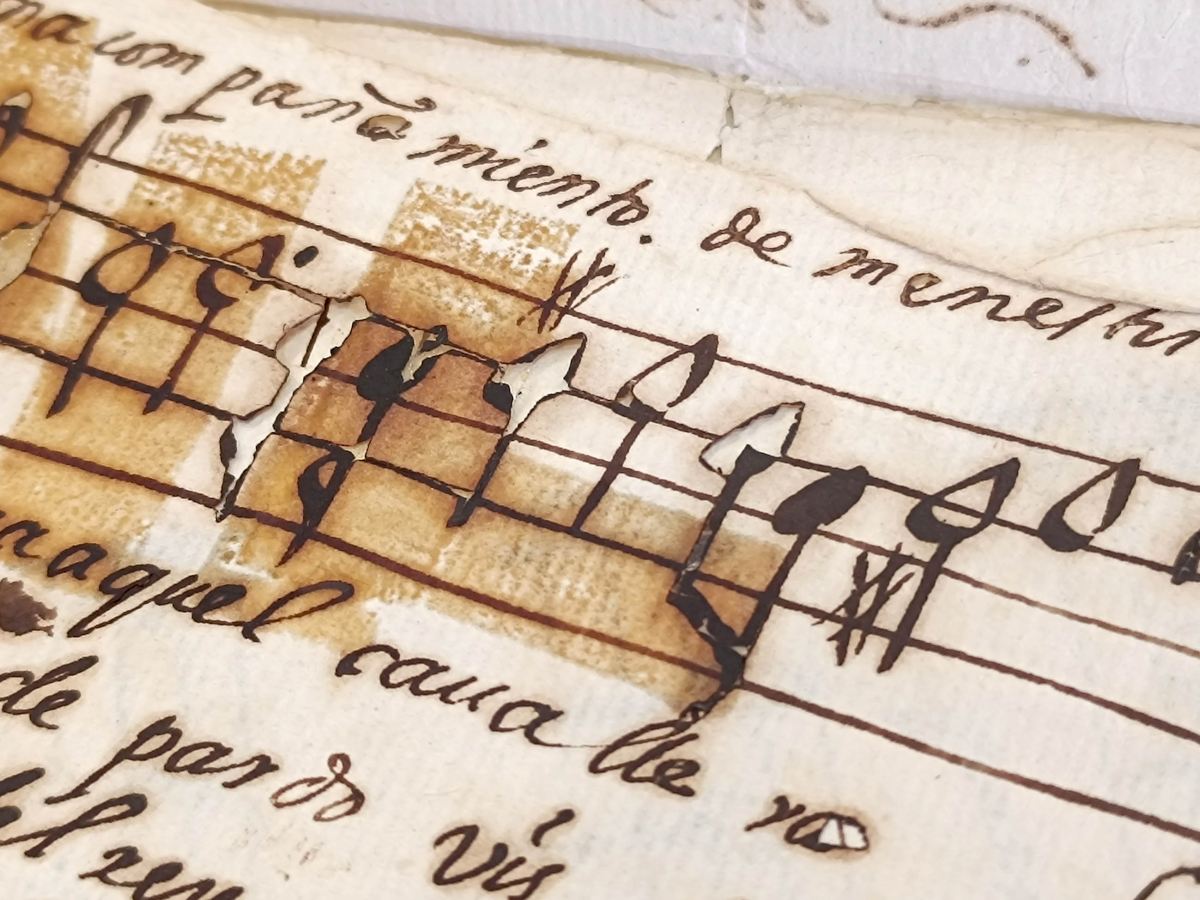 macom paña miento. de menestri
ra aquel caualle ro
de pardo vis